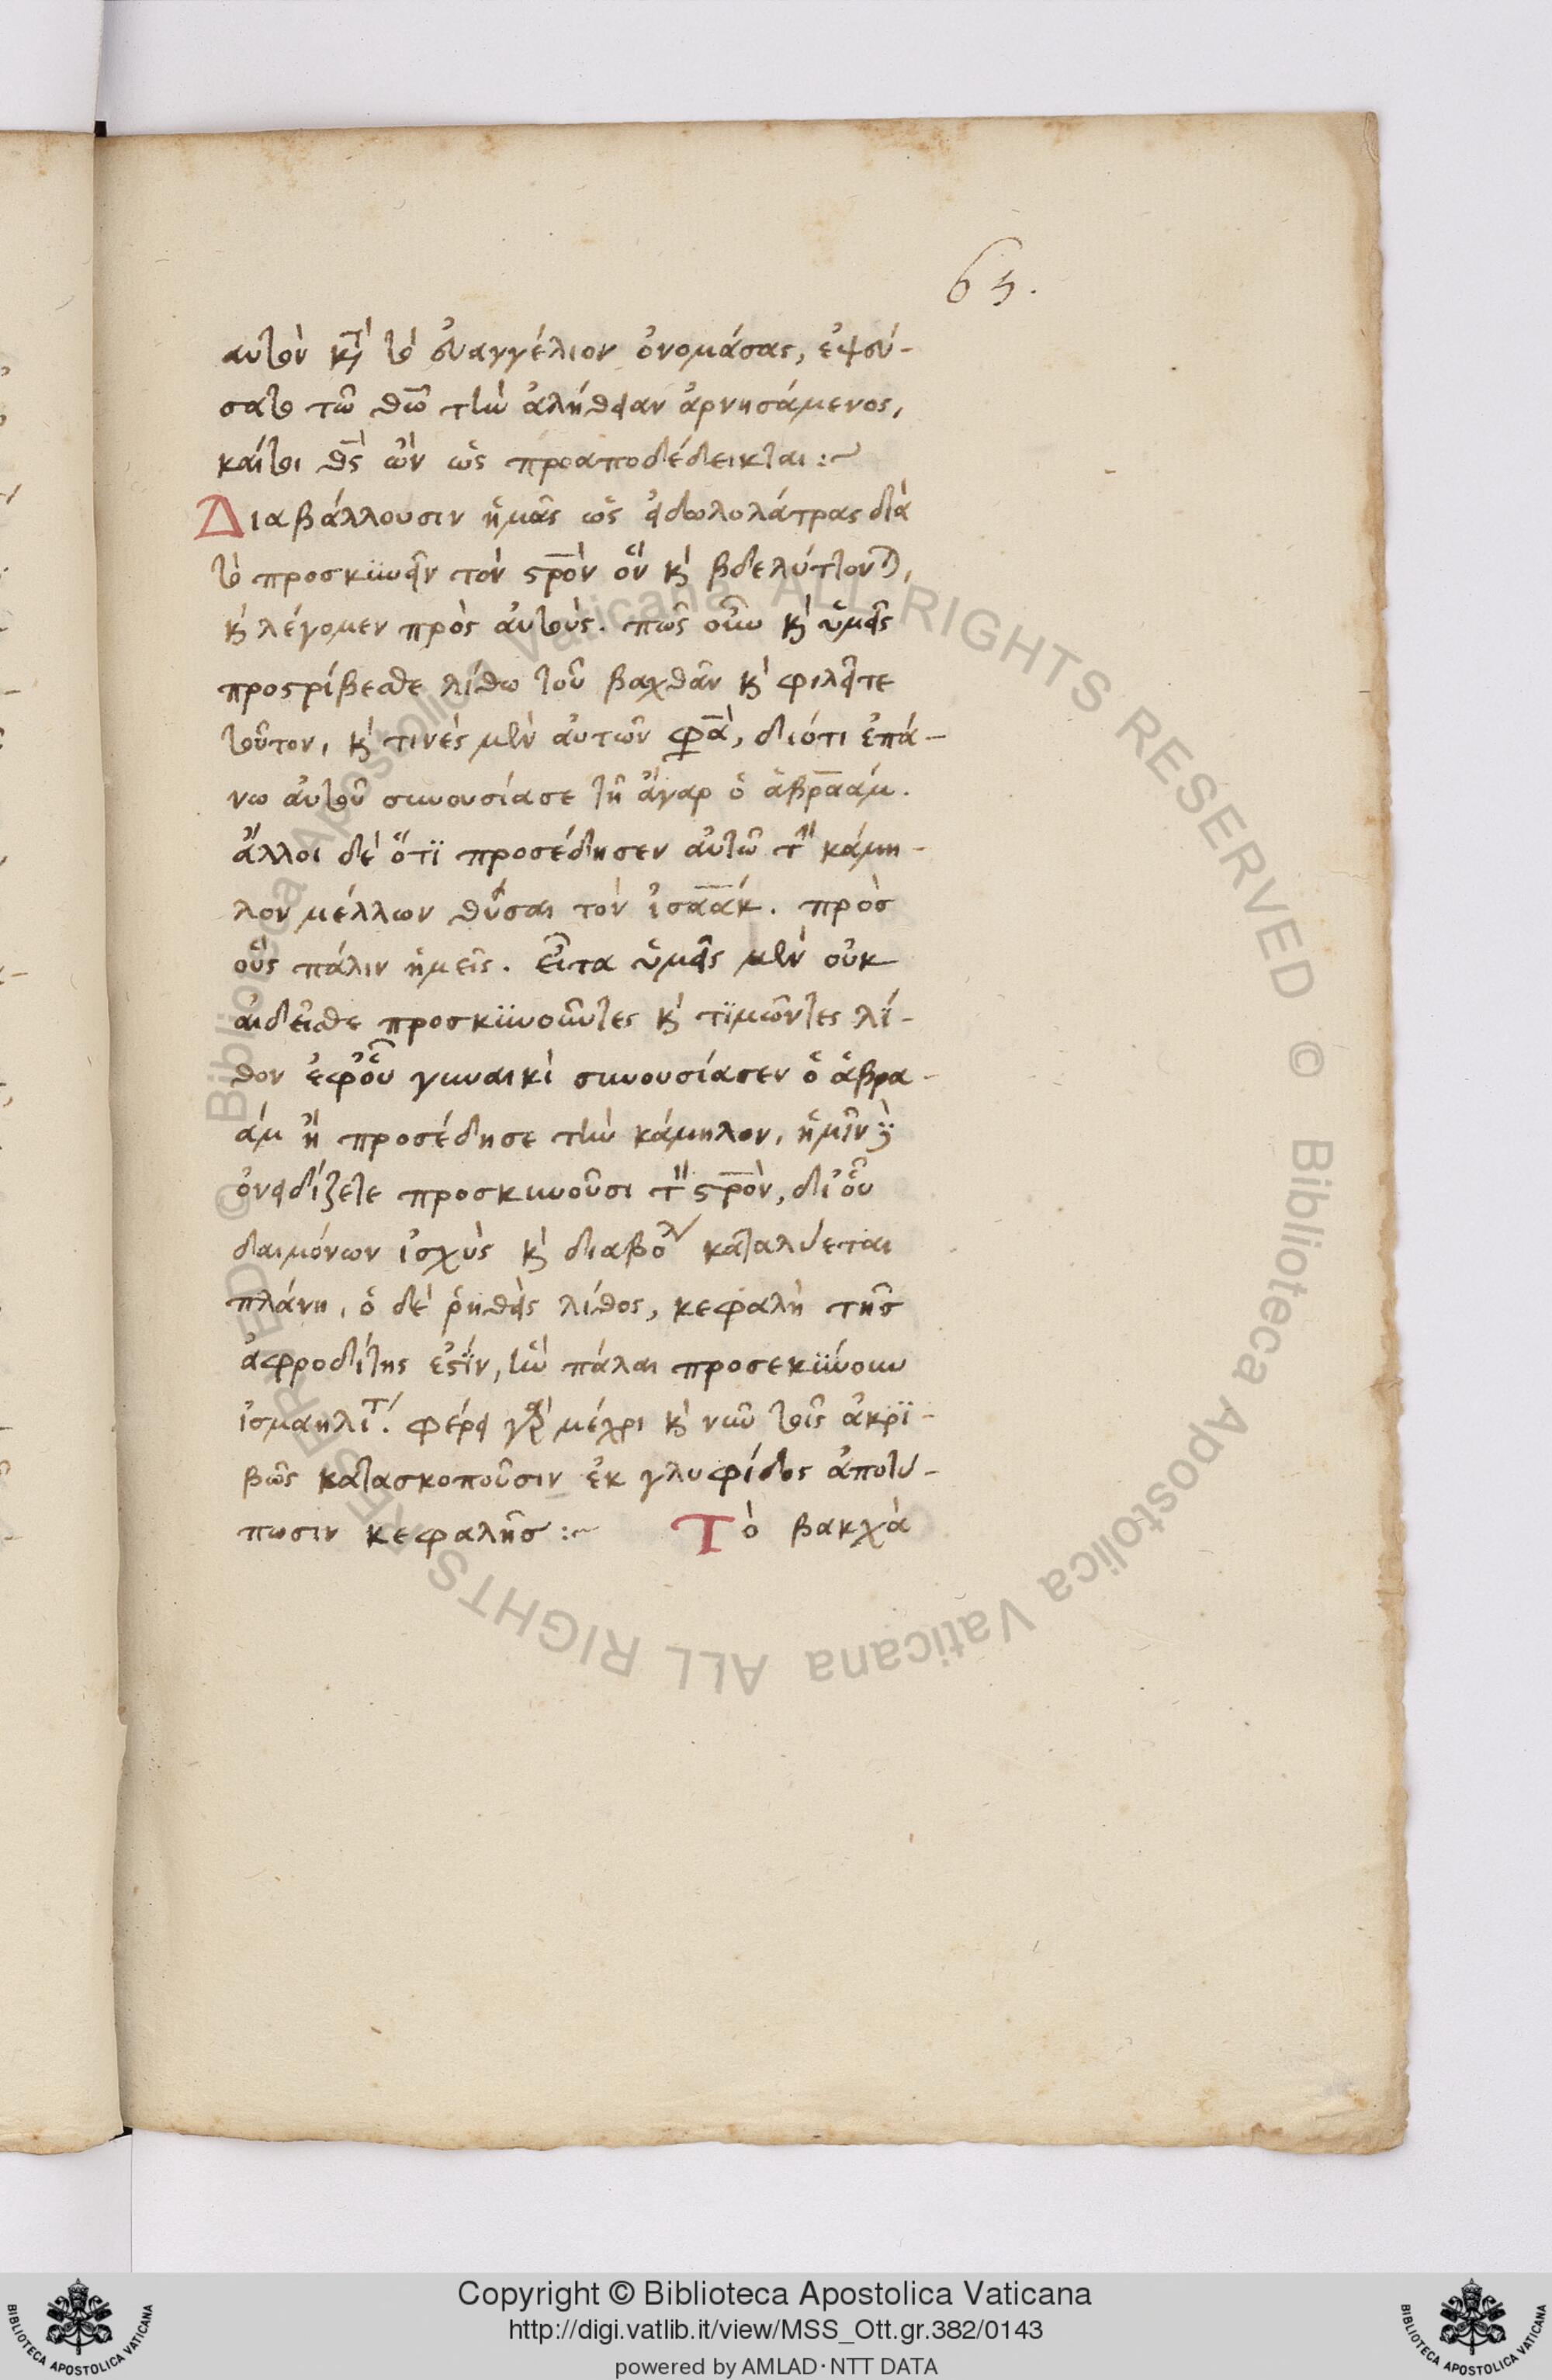 65.
αυτὸν κ(α)τ(ὰ) τὸ εὐαγγέλιον ὀνομάσας, ἐψεύ-
σατο τῶ θῶ τὴν ἀλήθειαν ἀρνησάμενος,
καίτοι θς ὢν ὡς προαποδέδεικται:~
Διαβάλλουσιν ἡμᾶς ὡς εἰδωλολάτρας διὰ
τὸ προσκϋνεῖν τὸν στρὸν ὃν κ βδελύττοντ(αι),
κ λέγομεν πρὸς αὐτοὺς. πῶς οὖν κ ὑμεῖς
προστρίβεσθε λίθω τοῦ βαχθὰν κ φιλεῖτε
τοῦτον, κ τινὲς μὲν αὐτῶν φα, διότι ἐπά-
νω αὐτοῦ συνουσίασε τῆ ἄγαρ ὁ ἀβραάμ.
ἄλλοι δὲ ὅτϊ προσέδησεν αὐτῶ τ(ὴν) κάμη-
λον μέλλων θύσαι τὸν ἰσαάκ. πρὸσ
οὓς πάλιν ἡμεῖς. εἶτα ὑμεῖς μὲν οὐκ
αἰδεῖσθε προσκϋνοῦντες κ τϊμῶντες λί-
θον ἐφ' οὗ γυναικὶ συνουσίασεν ὁ ἀβρα-
ὰμ ἢ προσέδησε τὴν κάμηλον, ἡμῖν δὲ
ὀνειδίζετε προσκυνοῦσι τ(ὸν) στρὸν, δι' οὗ
δαιμόνων ἰσχὺς κ διαβόλ(ου) καταλύεται
πλάνη, ὁ δὲ ῥηθεὶς λίθος, κεφαλὴ τῆσ
ἀφροδίτης ἐστϊν, ἣν πάλαι προσεκϋνουν
ἰσμαηλῖτ(αι). φέρει γὰρ μέχρι κ νῦν τοῖς ἀκρϊ-
βῶς κατασκοποῦσιν ἐκ γλυφίδος ἀποτύ-
πωσιν κεφαλῆσ:~ Τὸ βακχὰ
Copyright © Biblioteca Apostolica Vaticana
http://digi.vatlib.it/view/MSS_Ott.gr.382/0143
powered by AMLAD·NTT DATA
© Biblioteca Apostolica Vaticana ALL RIGHTS RESERVED
© Biblioteca Apostolica Vaticana ALL RIGHTS RESERVED
BIBLIOTECA APOSTOLICA VATICANA
BIBLIOTECA APOSTOLICA VATICANA